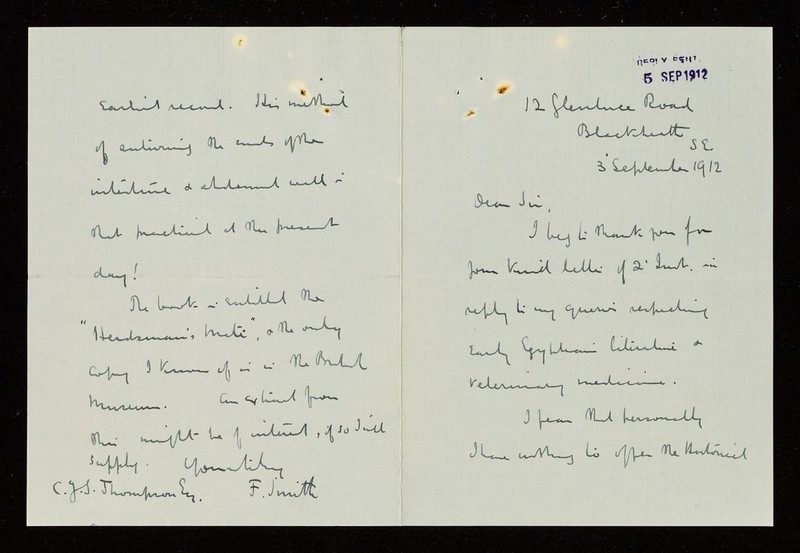 REPLY SENT.
5 SEP 1912
12 Glenluce Road
Blackheath
S.E.
3 September 1912
Dear Sir,
I beg to thank you for
your kind letter of 2 Inst. in
reply to my queries respecting
Early Egyptian literature &
veterinary medicine.
I fear that personally
I have nothing to offer the Historical
Earliest record. His method
of suturing the ends of the
intestine & abdominal wall is
that practised at the present
day!
The book is entitled the
"Herdsman's Mate", & the only
Copy I know of is in the British
Museum. An extract from
this might be of interest, if so I will
supply. Yours truly
C.J.S. Thompson Esq. F. Smith